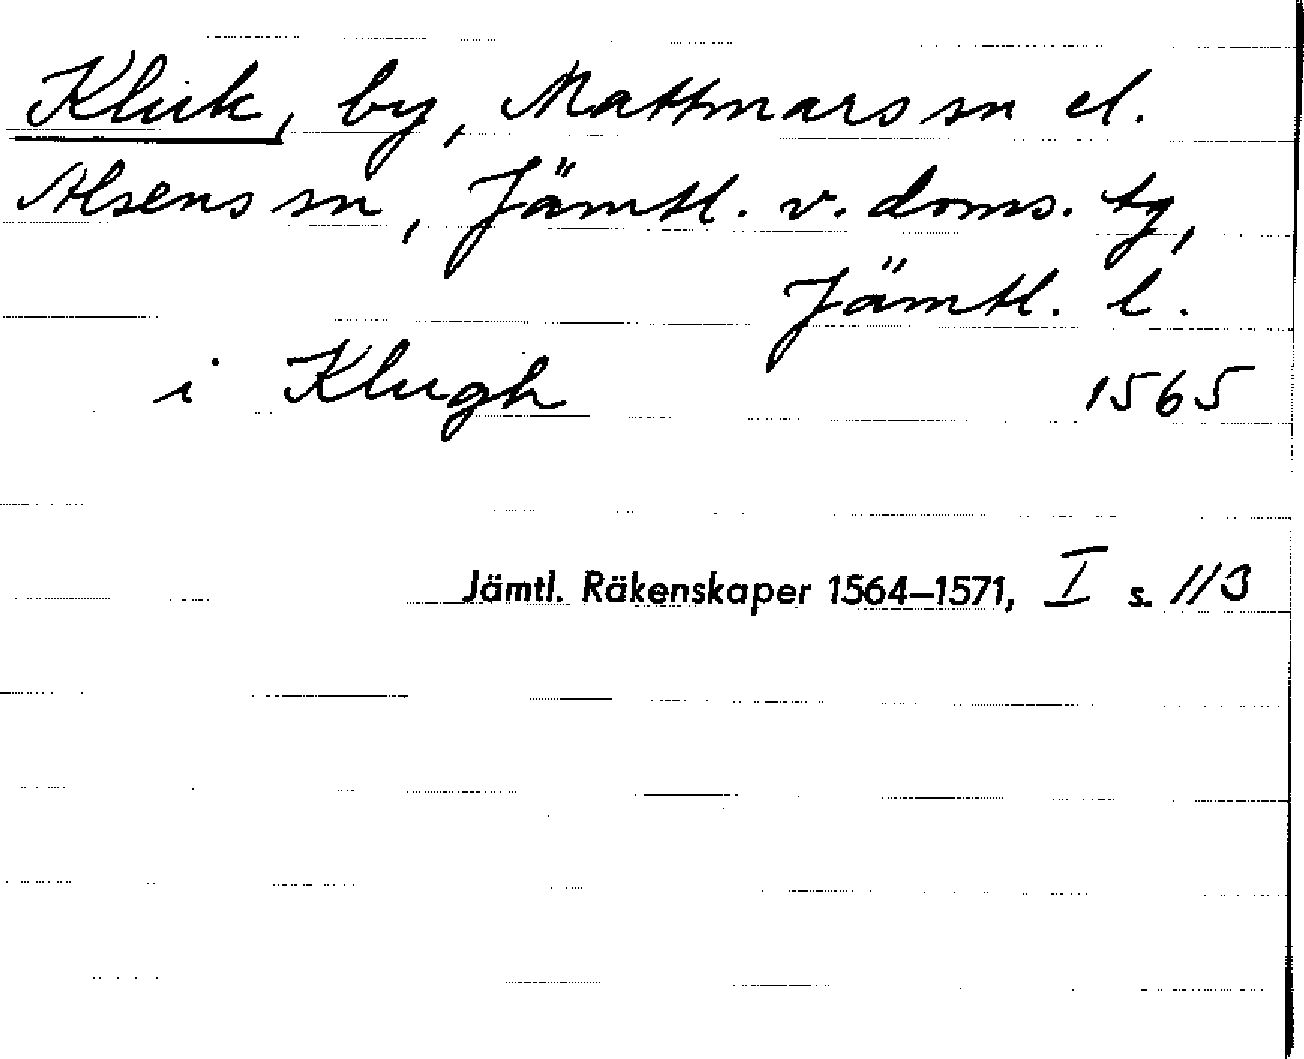 Kluk, by, Mattmars sn el.
Alsens sn, Jämtl. v. doms. tg,
Jämtl. l.
i Klugh 1565
Jämtl. Räkenskaper 1564–1571, I s. 113